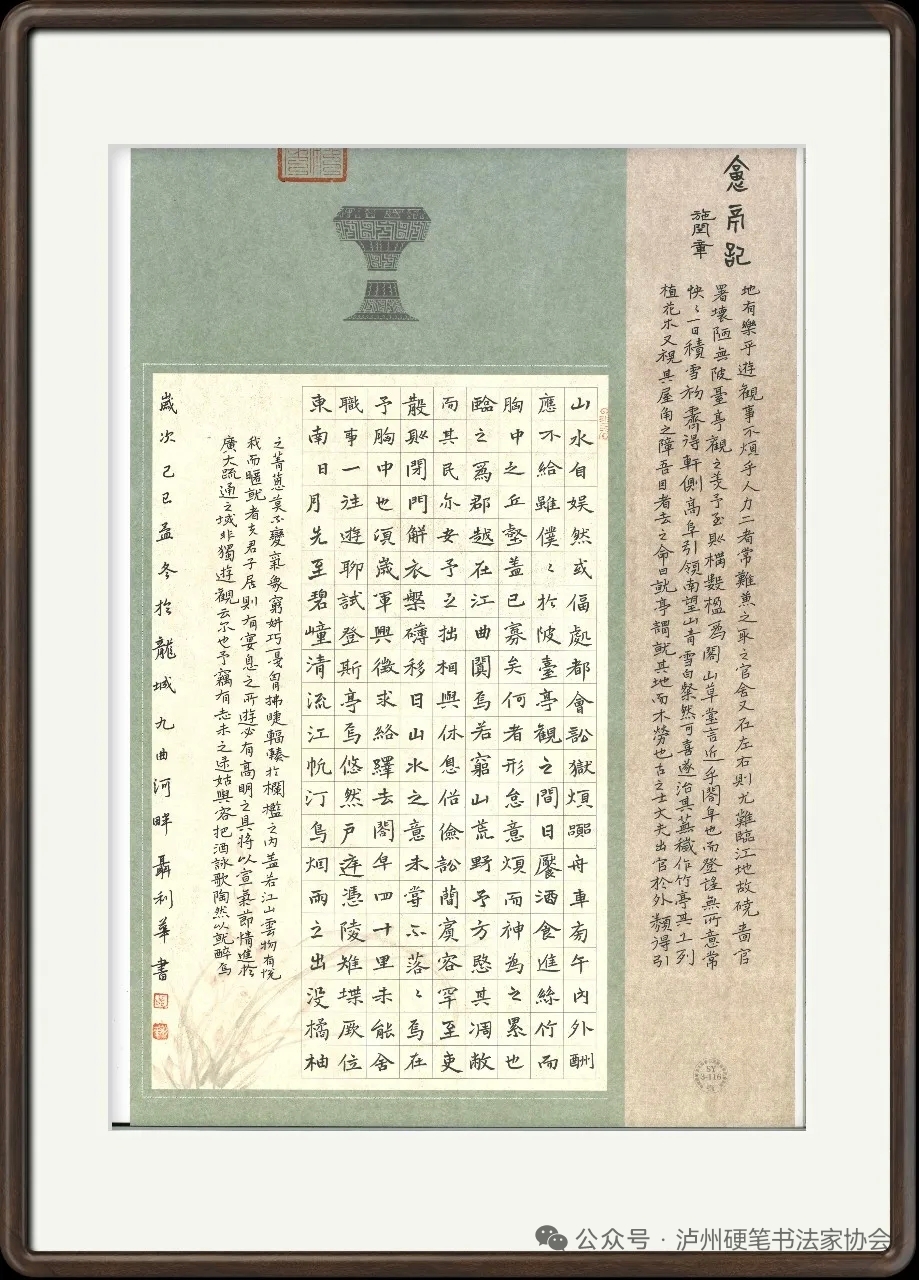 記
施閏章
地有樂乎遊觀事不煩乎人力二者常難兼之取之官舍又在左右則尤難臨江地故磽嗇官
署壞陋無陂臺亭觀之美予至則構數楹為閣山草堂言近乎閣皁也而登望無所意常
怏〻一日積雪初霽得軒側高阜引領南望山青雪白粲然可喜遂治其蕪穢作竹亭其上列
植花木又視其屋角之障吾目者去之命曰就亭謂就其地而不勞也古之士大夫出官於外類得引
山水自娛然或偪處都會訟獄煩囂舟車旁午內外酬
應不給雖僕〻於陂臺亭觀之間日饜酒食進絲竹而
胸中之丘壑蓋已寡矣何者形怠意煩而神為之累也
臨之為郡越在江曲闃焉若窮山荒野予方愍其凋敝
而其民亦安予之拙相與休息俗儉訟簡賓客罕至吏
散則閉門解衣槃礴移日山水之意未嘗不落〻焉在
予胸中也頃歲軍興徵求絡繹去閣皁四十里未能舍
職事一往遊聊試登斯亭焉悠然戶庭憑陵雉堞厥位
東南日月先至碧嶂清流江帆汀鳥烟雨之出沒橘柚
之菁蔥莫不變氣象窮妍巧戛胸拂睫輻輳於欄檻之內蓋若江山雲物有悅
我而暱就者夫君子居則有宴息之所遊必有高明之具將以宣氣節情進於
廣大疏通之域非獨遊觀云尔也予竊有志未之逮姑與客把酒詠歌陶然以就醉焉
歲次己巳孟冬於龍城九曲河畔聶利華書
公众号·泸州硬笔书法家协会